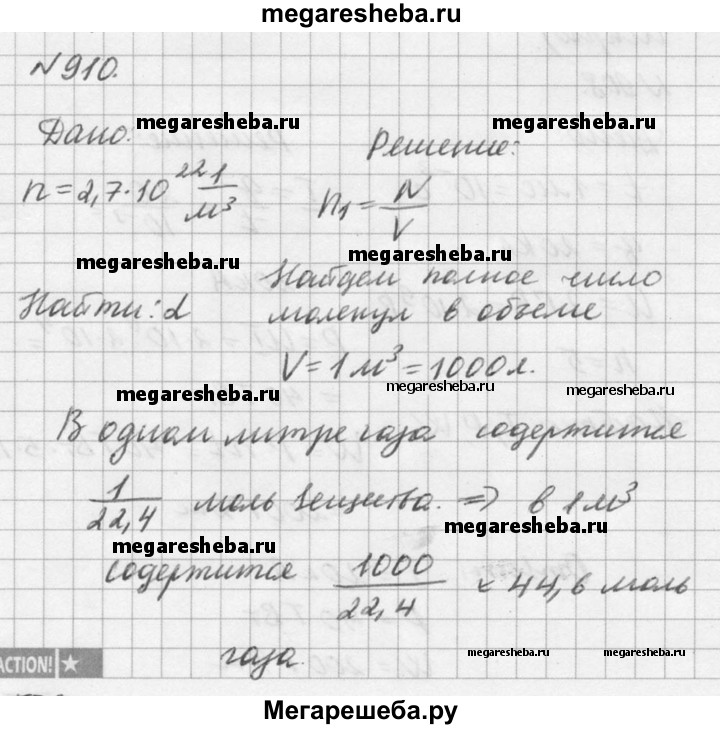 megaresheba.ru
№910.
Дано: megaresheba.ru megaresheba.ru
Решение:
n = 2,7·10²² 1/м³
n₁ = N/V
megaresheba.ru
megaresheba.ru
Найдем полное число
Найти: α молекул в объеме
V = 1 м³ = 1000 л.
megaresheba.ru megaresheba.ru megaresheba.ru
В одном литре газа содержится
1/22,4 моль вещества. ⇒ в 1 м³
megaresheba.ru
megaresheba.ru
содержится 1000/22,4 ≈ 44,6 моль
газа. megaresheba.ru megaresheba.ru
ACTION! ★
Мегарешеба.ру